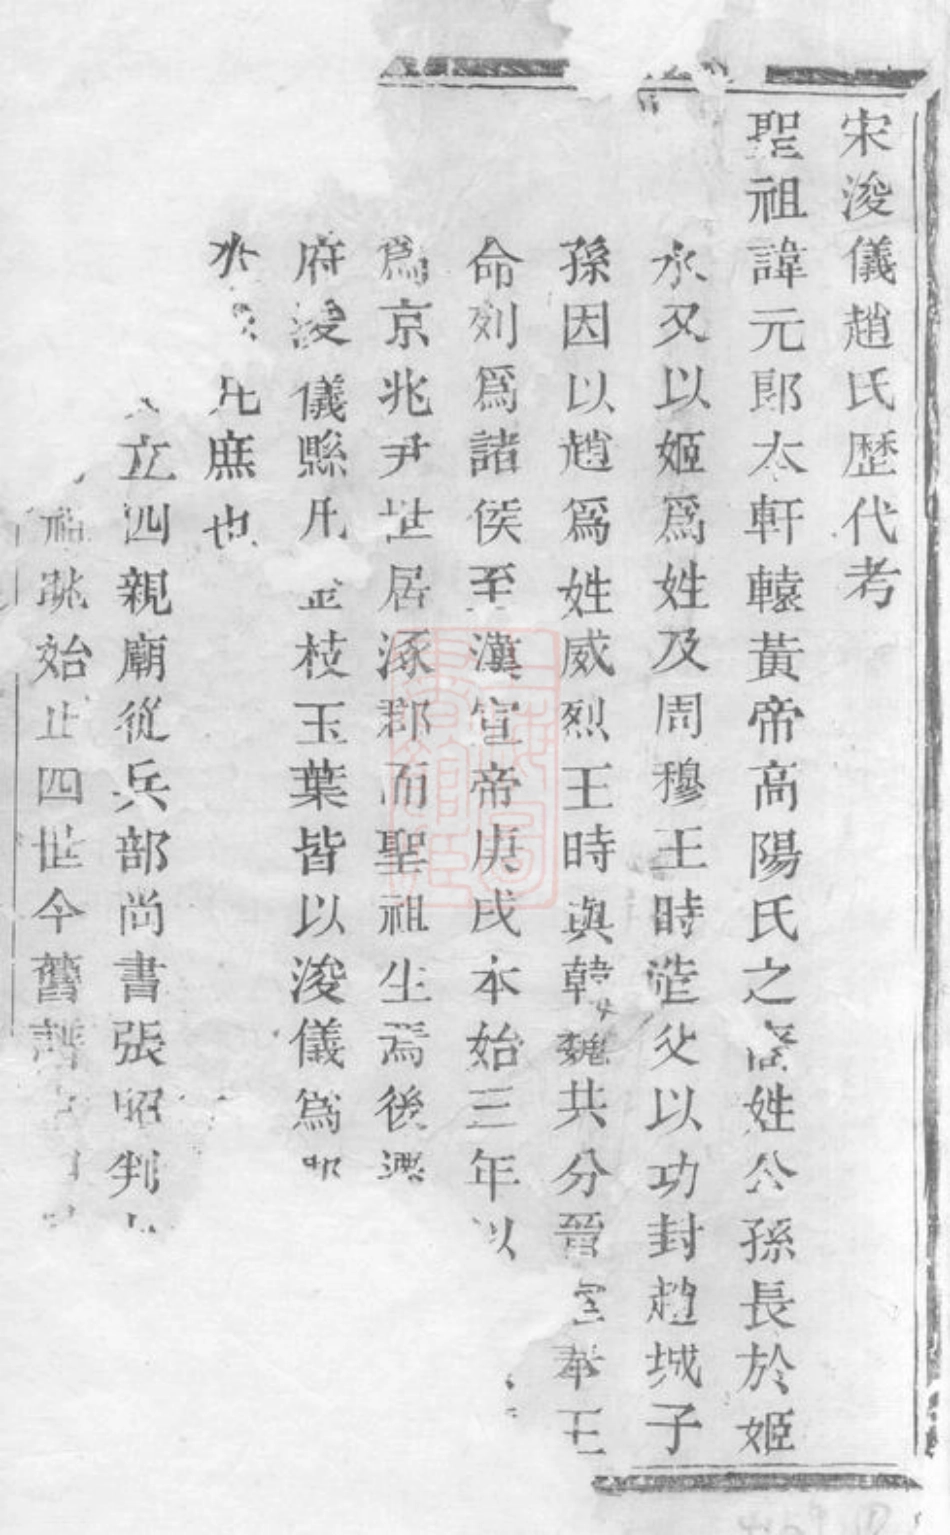 宋浚儀趙氏歷代考
聖祖諱元郎本軒轅黃帝高陽氏之裔姓公孫長於姬
水又以姬爲姓及周穆王時造父以功封趙城子
孫因以趙爲姓威烈王時與韓魏共分晉 奉王
命列爲諸侯至漢宣帝庚戌本始三年以
爲京兆尹世居涿郡而聖祖生焉後
府浚儀縣凡金枝玉葉皆以浚儀爲郡
水 凡 庶也
立四親廟從兵部尚書張昭判
祧始止四世今舊譜